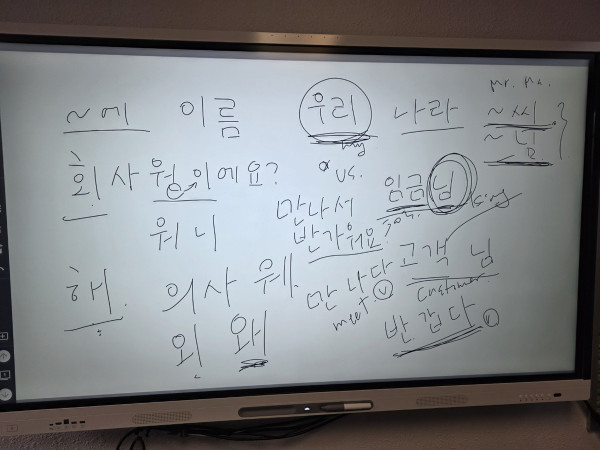 Mr. Ms.
~에 이름 우리 나라 ~씨
my ~님
회사원이에요? us.
만나서 임금님
워니 반가워요 king
해. 의사 웨. 만나다 고객님
meet. v customer
외 왜 반갑다